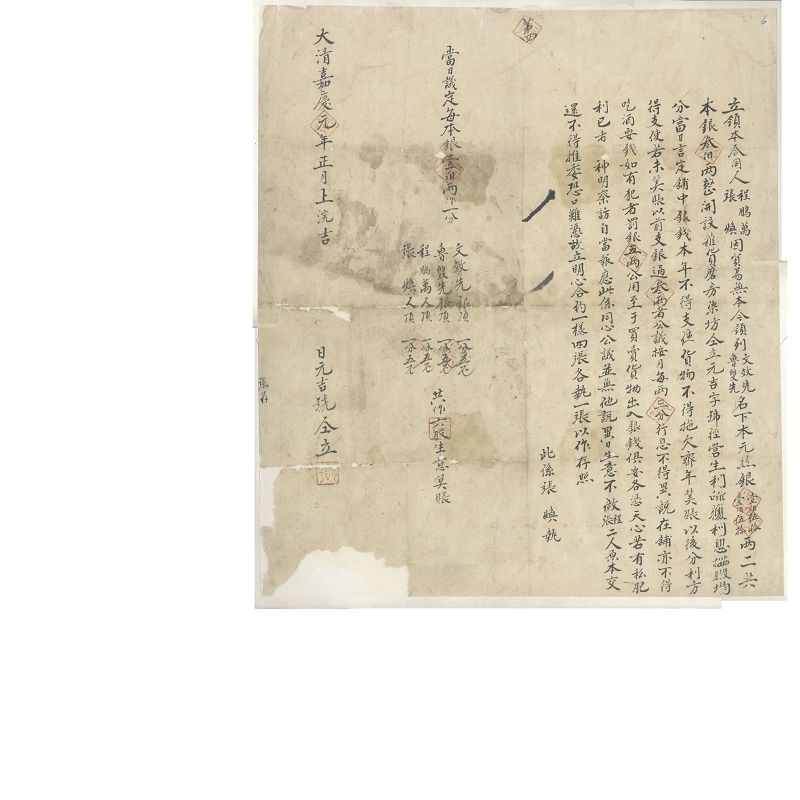 立領本合同人程鵬萬張煥因貿易無本今領到文敬先魯雙先名下本元絲銀壹佰伍拾壹佰伍拾兩二共
本銀叁佰兩整開設雜貨磨房染坊仝立元吉字號經營生利所獲利息按股均
分當日言定舖中銀錢本年不得支借貨物不得拖欠齊年筭賬以後分利方
得支使若未筭賬以前支銀過叁兩者公議按月每兩三分行息不得異說在舖亦不得
吃酒耍錢如有犯者罰銀五兩公用至于買賣貨物出入銀錢俱要各憑天心若有私肥
利己者神明察訪自當報應此係同心公議並無他說異日生意不做程張二人原本交
還不得推委恐口難憑故立明心合約一樣四張各執一張以作存照
此係張煥執
第四
當日議定每本銀壹佰兩作一分
文敬先銀頂一分五厘
魯雙先銀頂一分五厘
程鵬萬人頂一分五厘
張煥人頂一分五厘
共作六股生意筭賬
大清嘉慶元年正月上浣吉日元吉號仝立
張存
6